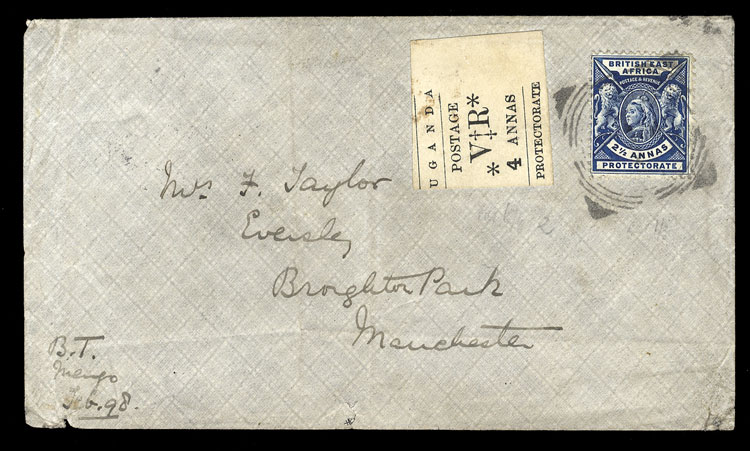 UGANDA
POSTAGE
*V‡R*
4 ANNAS
PROTECTORATE
BRITISH EAST
AFRICA
POSTAGE & REVENUE
2½ ANNAS
PROTECTORATE
Mrs F. Taylor
Eversley
Broughton Park
Manchester
B.T.
Mengo
Feb. 98.